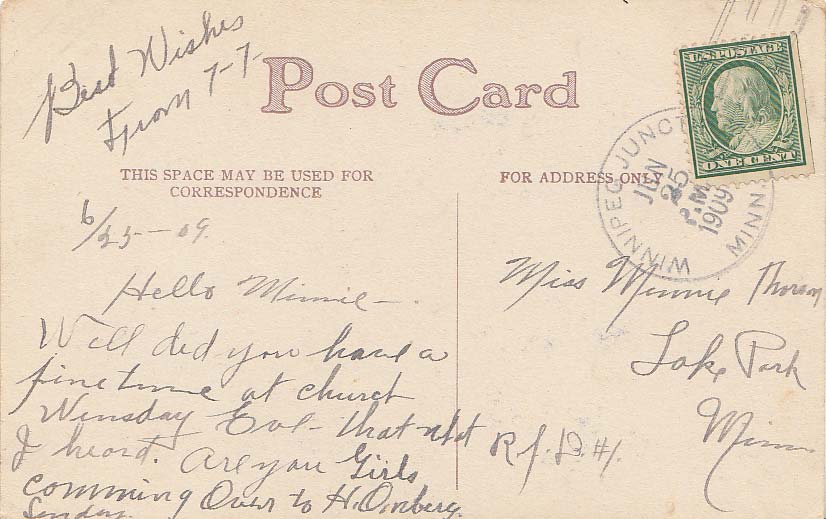 Best Wishes
From 7-7-
Post Card
U.S. POSTAGE
ONE CENT
WINNIPEG JUNCT
MINN.
JUN
25
P.M
1909
THIS SPACE MAY BE USED FOR
CORRESPONDENCE
FOR ADDRESS ONLY
6/25-09.
Hello Minnie-
Well did you have a
fine time at church
Wensday Eve- that what
I heard. Are you Girls
comming Over to H.
Sunday.
Miss Minnie Thorson
Lake Park
Minn
R.F.D. #1.